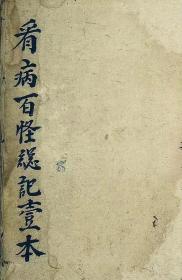 看病百怪総記壹本